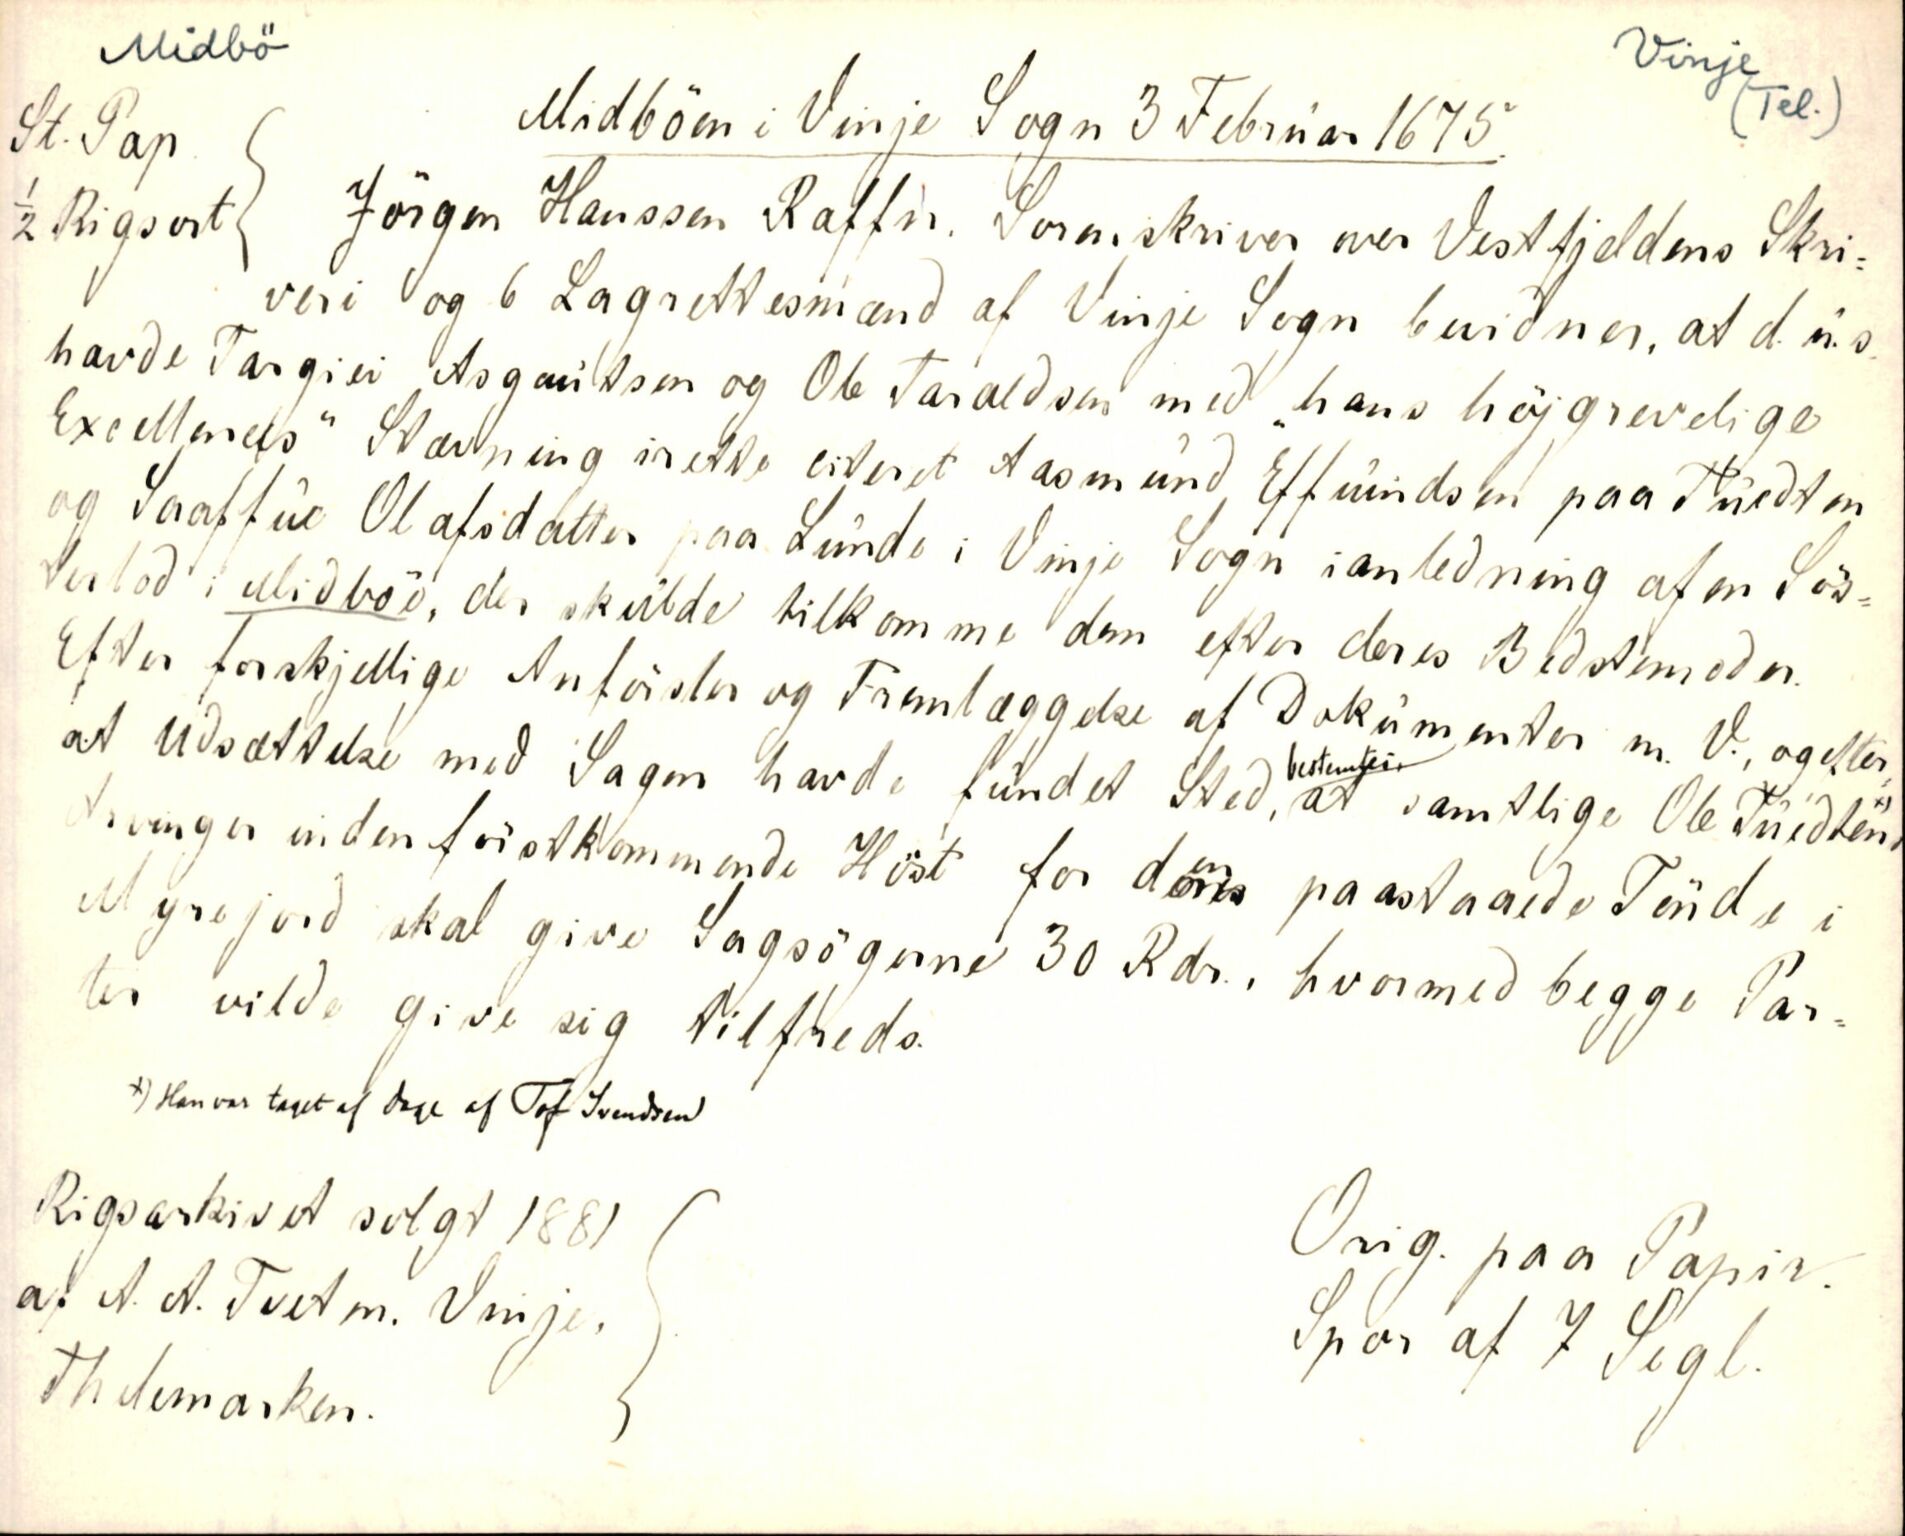 Midbö
Vinje
(Tel.)
St. Pap
1/2 Rigsort
Midböen i Vinje Sogn 3 Februar 1675.
Jörgen Hanssen Raffn, Sorenskriver over Vestfjeldens Skri=
veri og 6 Lagrettesmænd af Vinje Sogn bevidner, at d. u. s.
havde Targiei Asgautsen og Ole Taraldsen med „hans höjgrevelige
Excellences" Stævning irette citeret Aasmund Effuindsen paa Tuedten
og Saaffue Olafsdatter paa Lunde i Vinje Sogn ianledning af en Sös=
terlod i Midböe, der skulde tilkomme dem efter deres Bedstemoder.
Efter forskjellige Anförsler og Fremlæggelse af Dokumenter m. V., og efter,
at Udsættelse med Sagen havde fundet Sted, bestemtes, at samtlige Ole Tuedtens *)
Arvinger inden förstkommende Höst for den paastaaede Teüde i
Myrejord skal give Sagsögerne 30 Rdr., hvormed begge Par=
ter vilde give sig tilfreds.
*) Han var taget af dage af Tof Svendsen
Rigsarkivet solgt 1881
af A. A. Tveten. Vinje,
Thelemarken.
Orig. paa Papir.
Spor af 7 Segl.